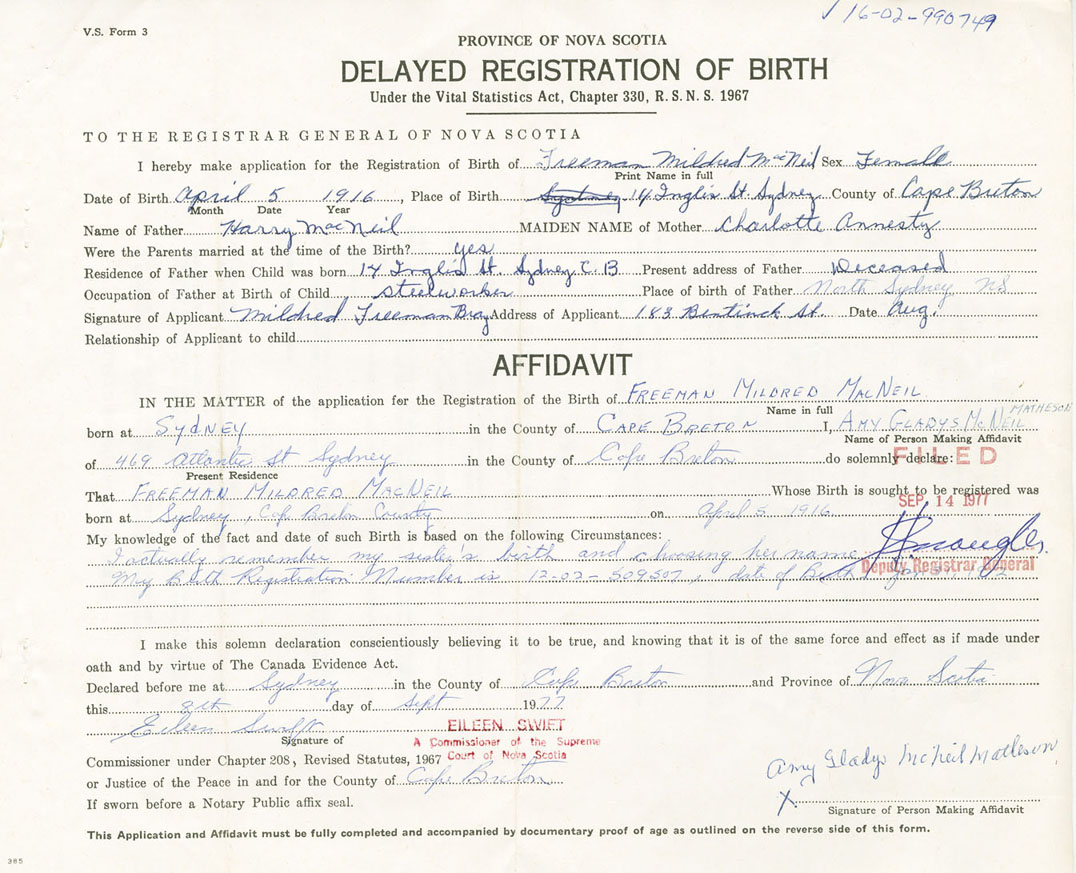 ✓ 16-02-990749
V.S. Form 3
PROVINCE OF NOVA SCOTIA
DELAYED REGISTRATION OF BIRTH
Under the Vital Statistics Act, Chapter 330, R. S. N. S. 1967
TO THE REGISTRAR GENERAL OF NOVA SCOTIA
I hereby make application for the Registration of Birth of Freeman Mildred MacNeil Sex Female
Print Name in full
Date of Birth April 5 1916, Place of Birth Sydney 14 Inglis St. Sydney County of Cape Breton
Month Date Year
Name of Father Harry MacNeil MAIDEN NAME of Mother Charlotte Annesty
Were the Parents married at the time of the Birth? yes
Residence of Father when Child was born 14 Inglis St. Sydney C. B Present address of Father Deceased
Occupation of Father at Birth of Child Steelworker Place of birth of Father North Sydney NS
Signature of Applicant Mildred Freeman Bray Address of Applicant 183 Bentinck St. Date Aug.
Relationship of Applicant to child
AFFIDAVIT
IN THE MATTER of the application for the Registration of the Birth of FREEMAN MILDRED MACNEIL
Name in full MATHESON
born at SYDNEY in the County of CAPE BRETON I, AMY GLADYS McNEIL
Name of Person Making Affidavit
of 469 Atlantic St Sydney in the County of Cape Breton do solemnly declare:
Present Residence FILED
That FREEMAN MILDRED MACNEIL Whose Birth is sought to be registered was
SEP 14 1977
born at Sydney, Cape Breton County on April 5 1916
My knowledge of the fact and date of such Birth is based on the following Circumstances:
I actually remember my sister's birth and choosing her name.
My Birth Registration Number is 12-02-509507, date of Birth
Deputy Registrar General
I make this solemn declaration conscientiously believing it to be true, and knowing that it is of the same force and effect as if made under
oath and by virtue of The Canada Evidence Act.
Declared before me at Sydney in the County of Cape Breton and Province of Nova Scotia
this 8th day of Sept 1977
Eileen Swift EILEEN SWIFT
Signature of A Commissioner of the Supreme
Commissioner under Chapter 208, Revised Statutes, 1967 Court of Nova Scotia
or Justice of the Peace in and for the County of Cape Breton
Amy Gladys McNeil Matheson
If sworn before a Notary Public affix seal. X
Signature of Person Making Affidavit
This Application and Affidavit must be fully completed and accompanied by documentary proof of age as outlined on the reverse side of this form.
385